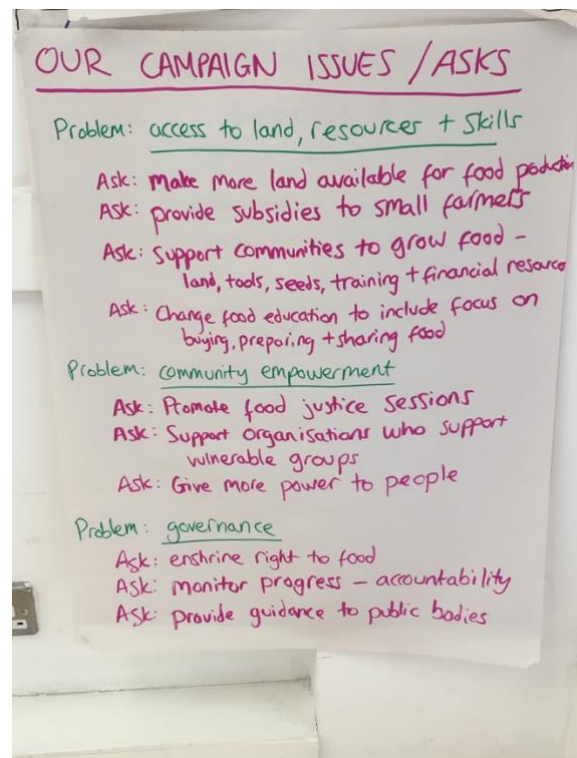 OUR CAMPAIGN ISSUES / ASKS
Problem: access to land, resources + skills
Ask: Make more land available for food production
Ask: provide subsidies to small farmers
Ask: Support communities to grow food -
land, tools, seeds, training + financial resource
Ask: Change food education to include focus on
buying, preparing + sharing food
Problem: community empowerment
Ask: Promote food justice sessions
Ask: Support organisations who support
vulnerable groups
Ask: Give more power to people
Problem: governance
Ask: enshrine right to food
Ask: monitor progress – accountability
Ask: provide guidance to public bodies